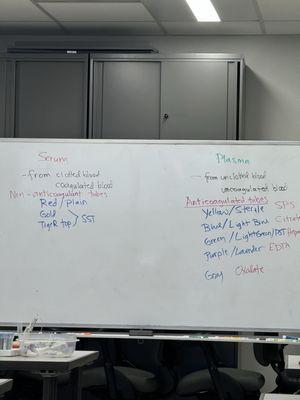 Serum
- from clotted blood
coagulated blood
Non-anticoagulant tubes
Red/plain
Gold
Tiger top > SST
Plasma
- from unclotted blood
uncoagulated blood
Anticoagulated tubes
Yellow/Sterile SPS
Blue/Light Blue Citrate
Green/Light Green/PST Hepa
Purple/Lavender EDTA
Gray Oxalate